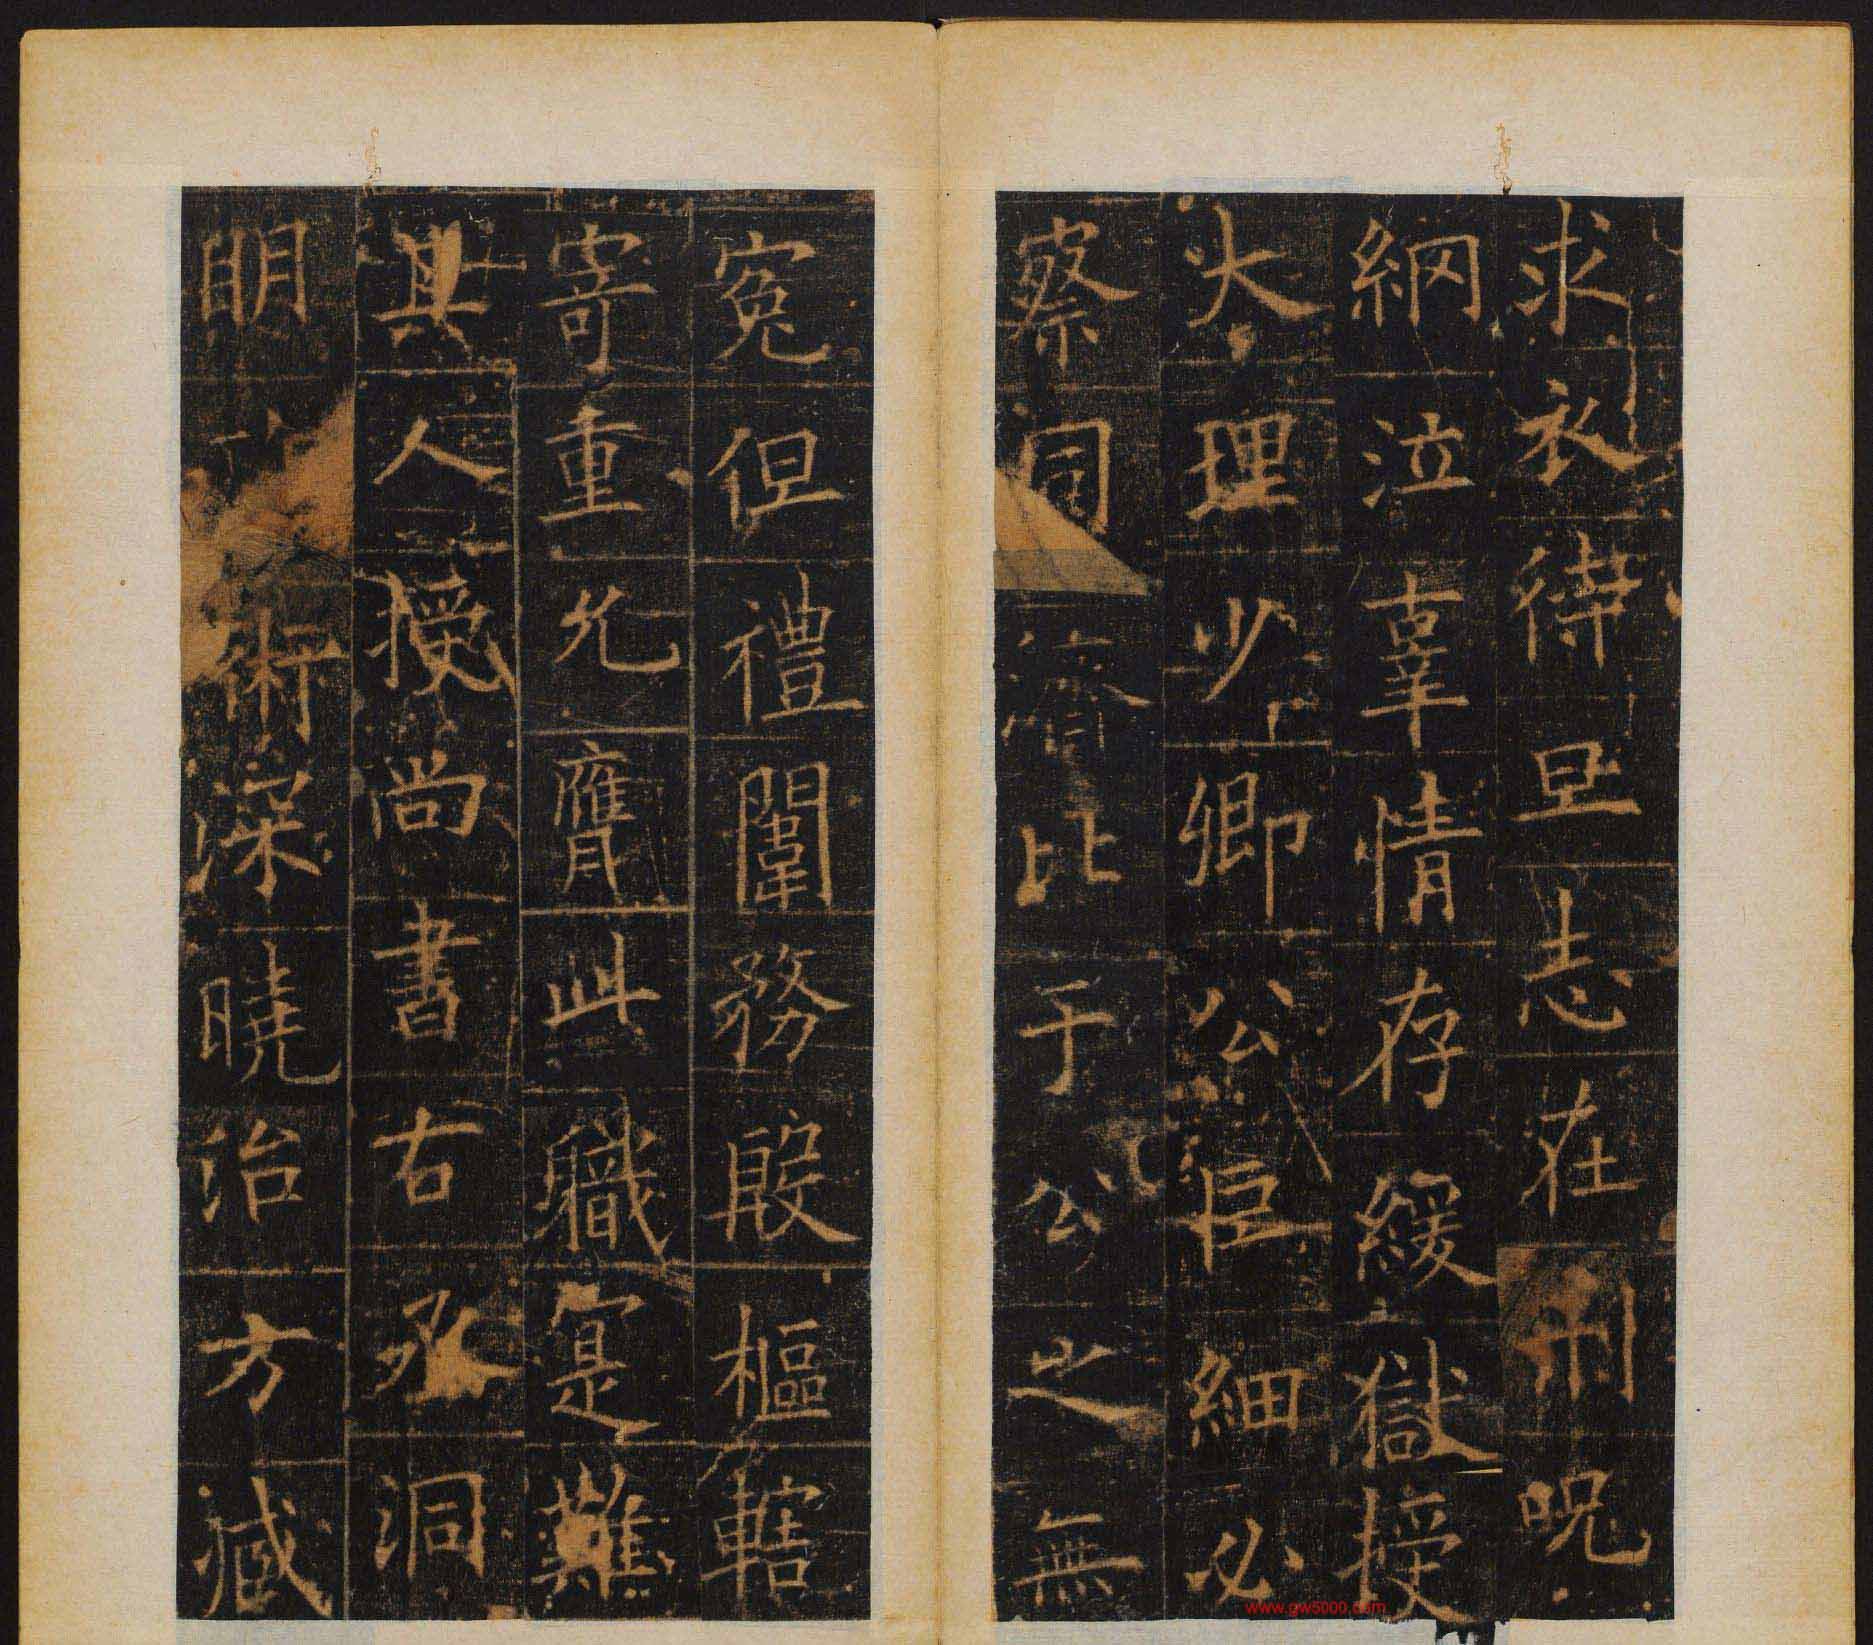 求衣待旦志在刑呪
網泣辜情存緩獄授
大理少卿公巨細必
察同濟比于公之無
冤但禮闈務殷樞轄
寄重允膺此職寔難
其人授尚書右丞洞
明術深曉治方臧
www.gw5000.com